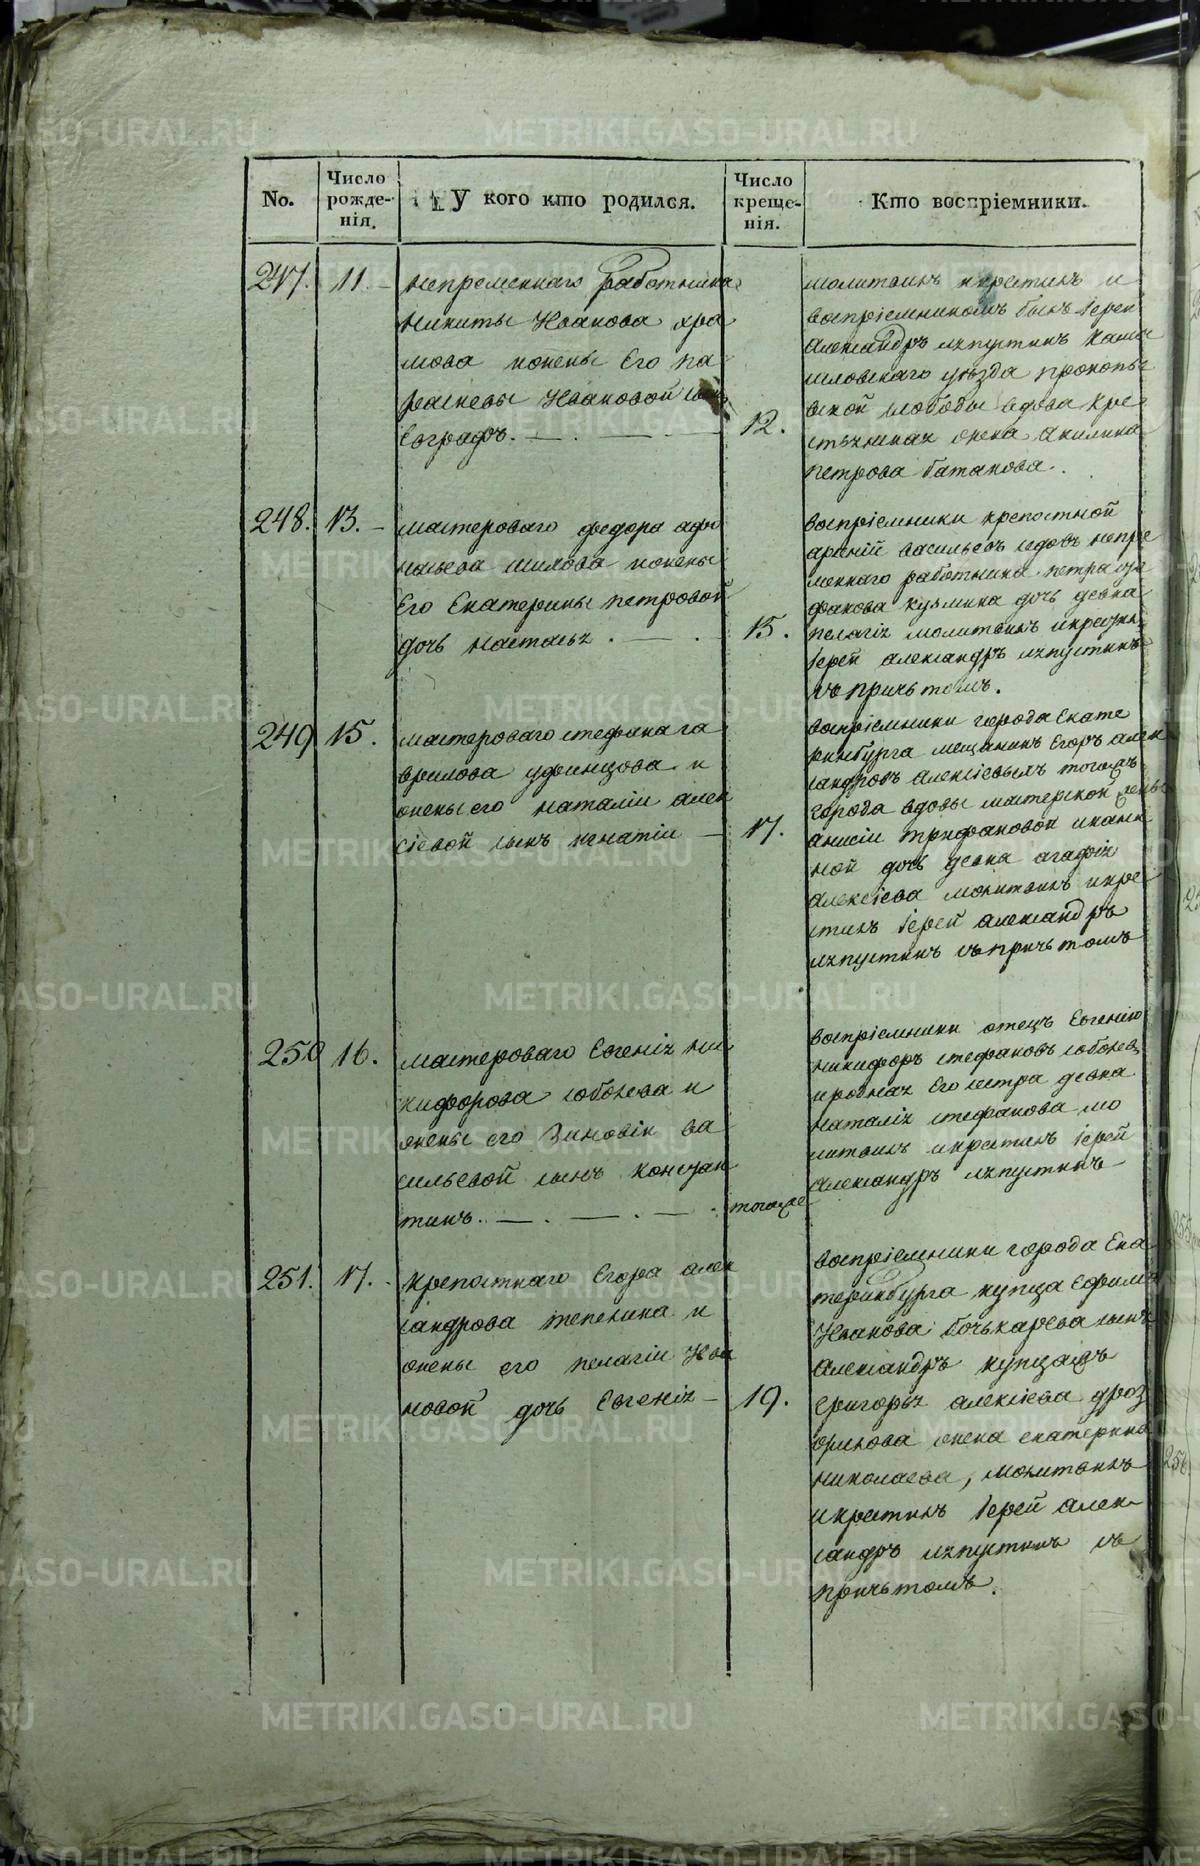 METRIKI.GASO-URAL.RU
No.
Число
рожде-
нія.
У кого кто родился.
Число
креще-
нія.
Кто воспріемники.
247. 11.
непременнаго работника
Никиты Иванова хра
мова и жены Его па
расковьи Ивановой сынъ
Евграфъ. 12.
молитвилъ и крестилъ и
воспріемникомъ былъ Іерей
Александръ
шловскаго уѣзда прокопь
вской слободы вдова кре
стьянская жена Акилина
петрова батакова.
248. 13.
мастероваго федора афо
насьева шилова и жены
Его Екатерины петровой
дочь настасья. 15.
воспріемники крепостной
васильевъ непре
меннаго работника петра
дочь девка
пелагія молитвилъ и крестилъ
Іерей александръ
съ причьтомъ.
249 15.
мастероваго стефана га
врилова уфинцова и
жены его наталіи алек
сіевой сынъ игнатій 17.
воспріемники города Екате
ринбурга мещанинъ Егоръ алек
сандровъ тогожъ
города вдовы мастерской жены
анисіи трифановой
дочь девка агафія
алексіева молитвилъ и кре
стилъ Іерей александръ
съ причьтомъ
250 16.
мастероваго Евгенія ни
кифорова соболева и
жены его Зиновіи ва
сильевой сынъ констан
тинъ. тогоже
воспріемники отецъ Евгенію
никифоръ стефановъ соболев
и родная Его сестра девка
наталія стефанова мо
литвилъ и крестилъ Іерей
Александръ
251. 17.
крепостнаго Егора алек
сандрова тепелина и
жены его пелагіи Ива
новой дочь Евгенія 19.
воспріемники города Ека
теринбурга купца Ефима
Иванова бочькарева сынъ
Александръ купца
григорья алексіева дроз
жена екатерина
николаева, молитвилъ
и крестилъ Іерей алек-
сандръ съ
причьтомъ.